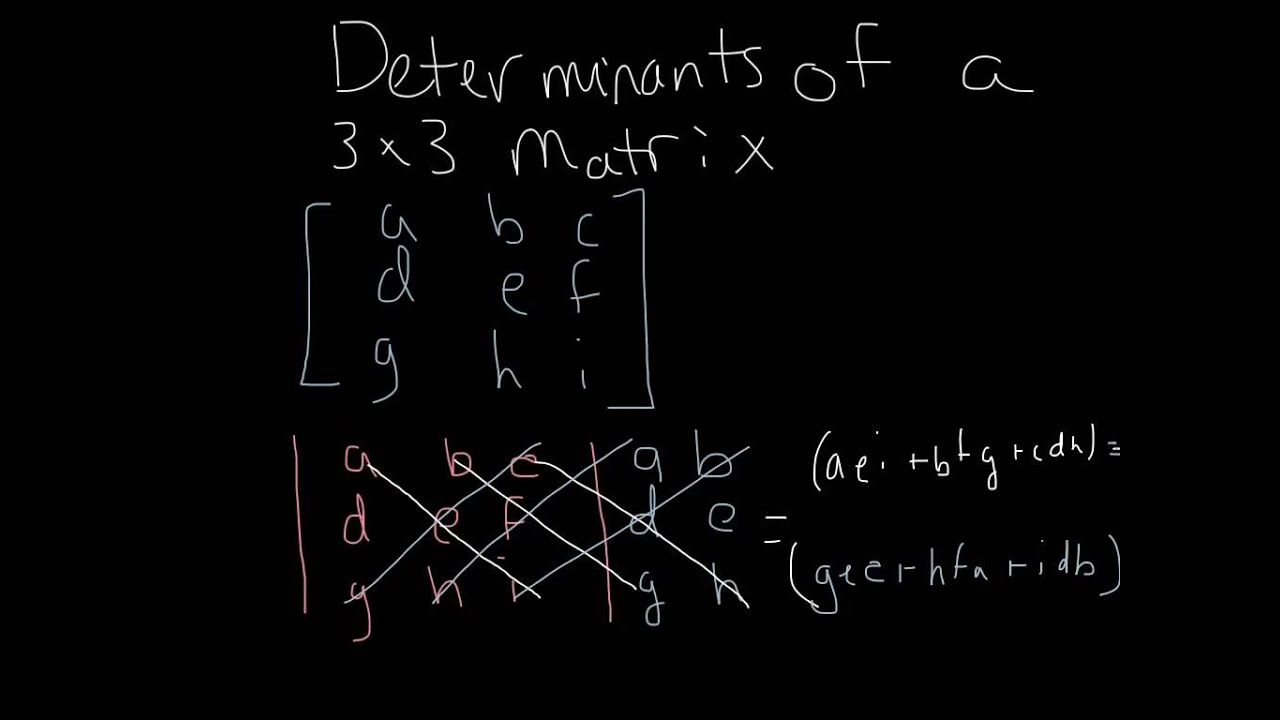 Determinants of a
3×3 Matrix
a b c
d e f
g h i
a b c a b
d e f d e =
g h i g h
(aei + bfg + cdh) =
(gec + hfa + idb)